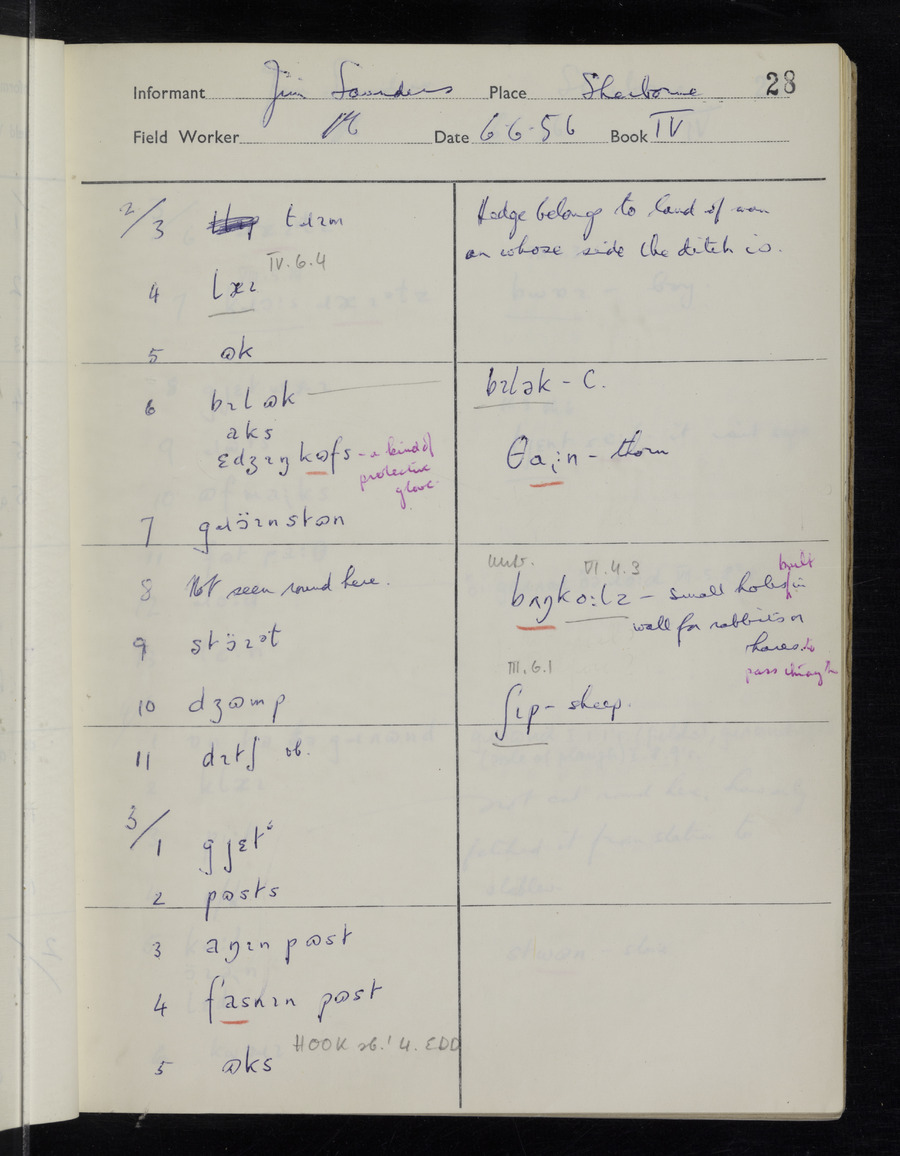 Informant Jim Saunders Place Sherborne 28
Field Worker Date 6-6-56 Book IV
2/3 tɹɪm
Hedge belongs to land of man
on whose side the ditch is.
IV.6.4
4 lɶɪ
5 ɷk
6 bɪlɷk
bɪlək - C.
aks
ɛdʒɪŋ kɷfs - a kind of
protective
glove
θa¡n - thorn
7 gɹöɪnstɷn
8 Not seen round here.
VI.4.3
bʌŋkoːlz - small holes built in
wall for rabbits or
hares to
pass through
9 stöɪət
III.6.1
10 dʒɷmp
ʃɪp - sheep.
11 dɪtʃ ob.
3/1 gjɛt
2 pɷsts
3 aŋɪn pɷst
4 fasnɪn pɷst
HOOK sb.' 4. EDD
5 ɷks